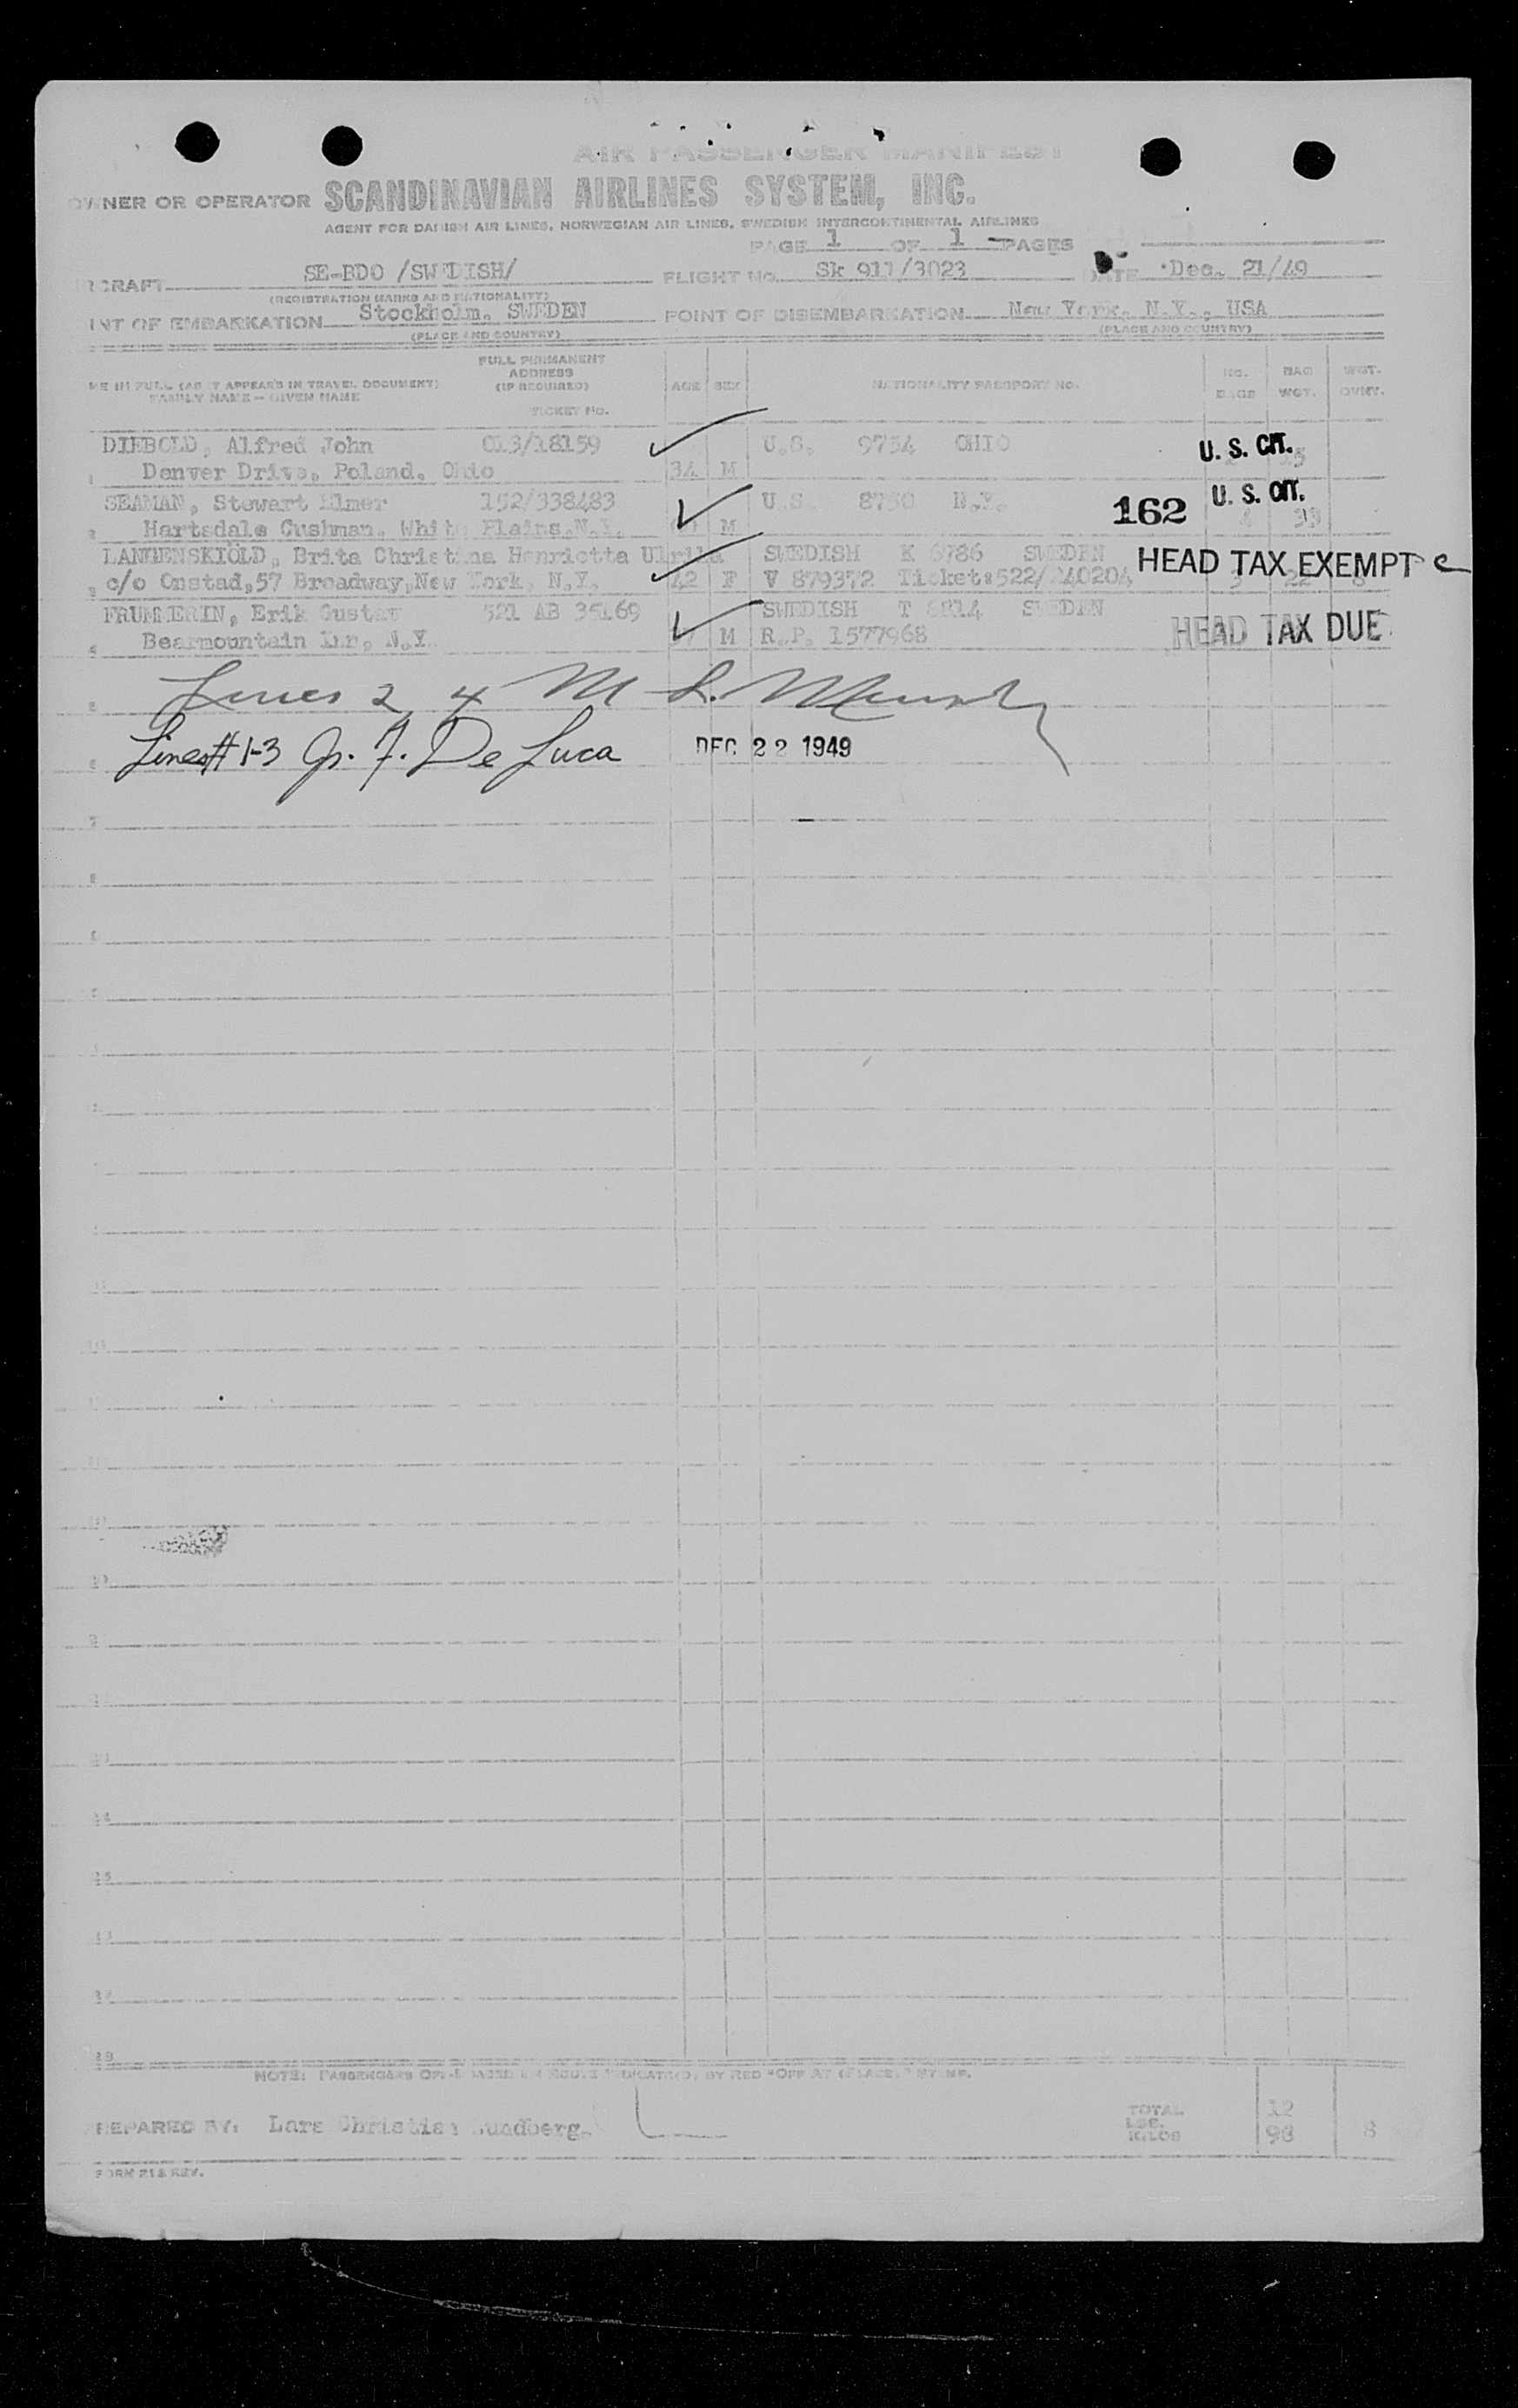 AIR PASSENGER MANIFEST
OWNER OR OPERATOR SCANDINAVIAN AIRLINES SYSTEM, INC.
AGENT FOR DANISH AIR LINES, NORWEGIAN AIR LINES, SWEDISH INTERCONTINENTAL AIRLINES
PAGE 1 OF 1 PAGES
RCRAFT SE-BDO /SWEDISH/ FLIGHT NO. Sk 911/3023 DATE Dec. 21/49
(REGISTRATION MARKS AND NATIONALITY)
INT OF EMBARKATION Stockholm. SWEDEN POINT OF DISEMBARKATION New York. N.Y., USA
(PLACE AND COUNTRY) (PLACE AND COUNTRY)
ME IN FULL (AS IT APPEARS IN TRAVEL DOCUMENT) FAMILY NAME – GIVEN NAME FULL PERMANENT ADDRESS (IF REQUIRED) TICKET NO. AGE SEX NATIONALITY PASSPORT NO. NO. BAGS BAG WGT. WGT. OVWT.
DIEBOLD, Alfred John 013/18159 U.S. 9754 OHIO U. S. CIT.
1 Denver Drive, Poland, Ohio 34 M
SEAMAN, Stewart Elmer 152/338483 U.S. 8750 N.Y. 162 U. S. CIT.
2 Hartsdale Cushman, White Plains,N.Y. M
LANGENSKIÖLD, Brita Christina Henrietta Ulrika SWEDISH K 6786 SWEDEN HEAD TAX EXEMPT
3 c/o Onstad,57 Broadway,New York, N.Y. 42 F V 879372 Ticket:522/240204 3 22 8
FRUMERIN, Erik Gustav 521 AB 35169 SWEDISH T 6814 SWEDEN HEAD TAX DUE
4 Bearmountain Inn, N.Y. M R.P. 1577968
Lines 2, 4 M L. Murphy
Lines# 1-3 G. F. De Luca DEC 22 1949
NOTE: PASSENGERS OFF-LOADED EN ROUTE INDICATED BY RED "OFF AT (PLACE)" STAMP.
PREPARED BY: Lars Christian Lundberg. TOTAL 12
LBS.
KILOS 98 8
FORM 218 REV.